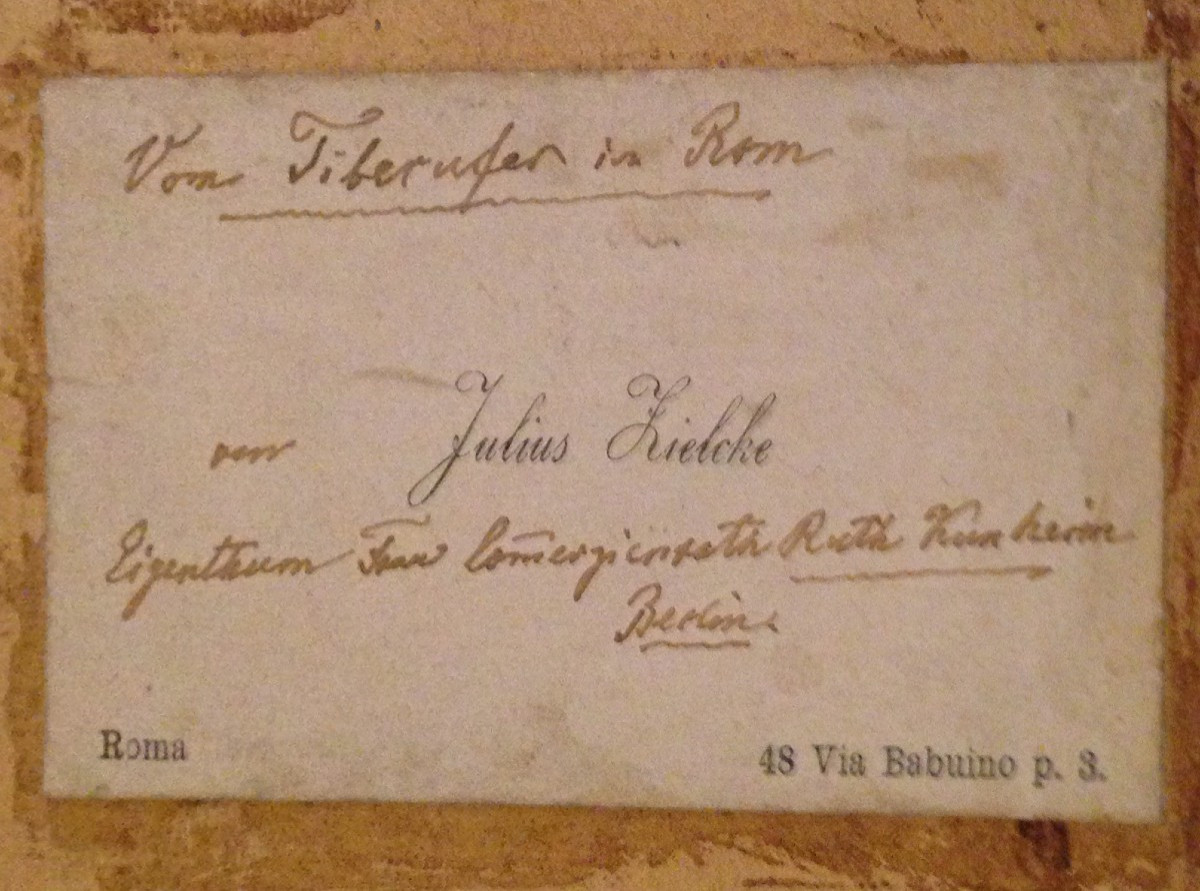 Vom Tiberufer in Rom
von Julius Zielcke
Eigenthum Frau Com̄erzienrath Ruth Kunheim
Berlin.
Roma 48 Via Babuino p. 3.